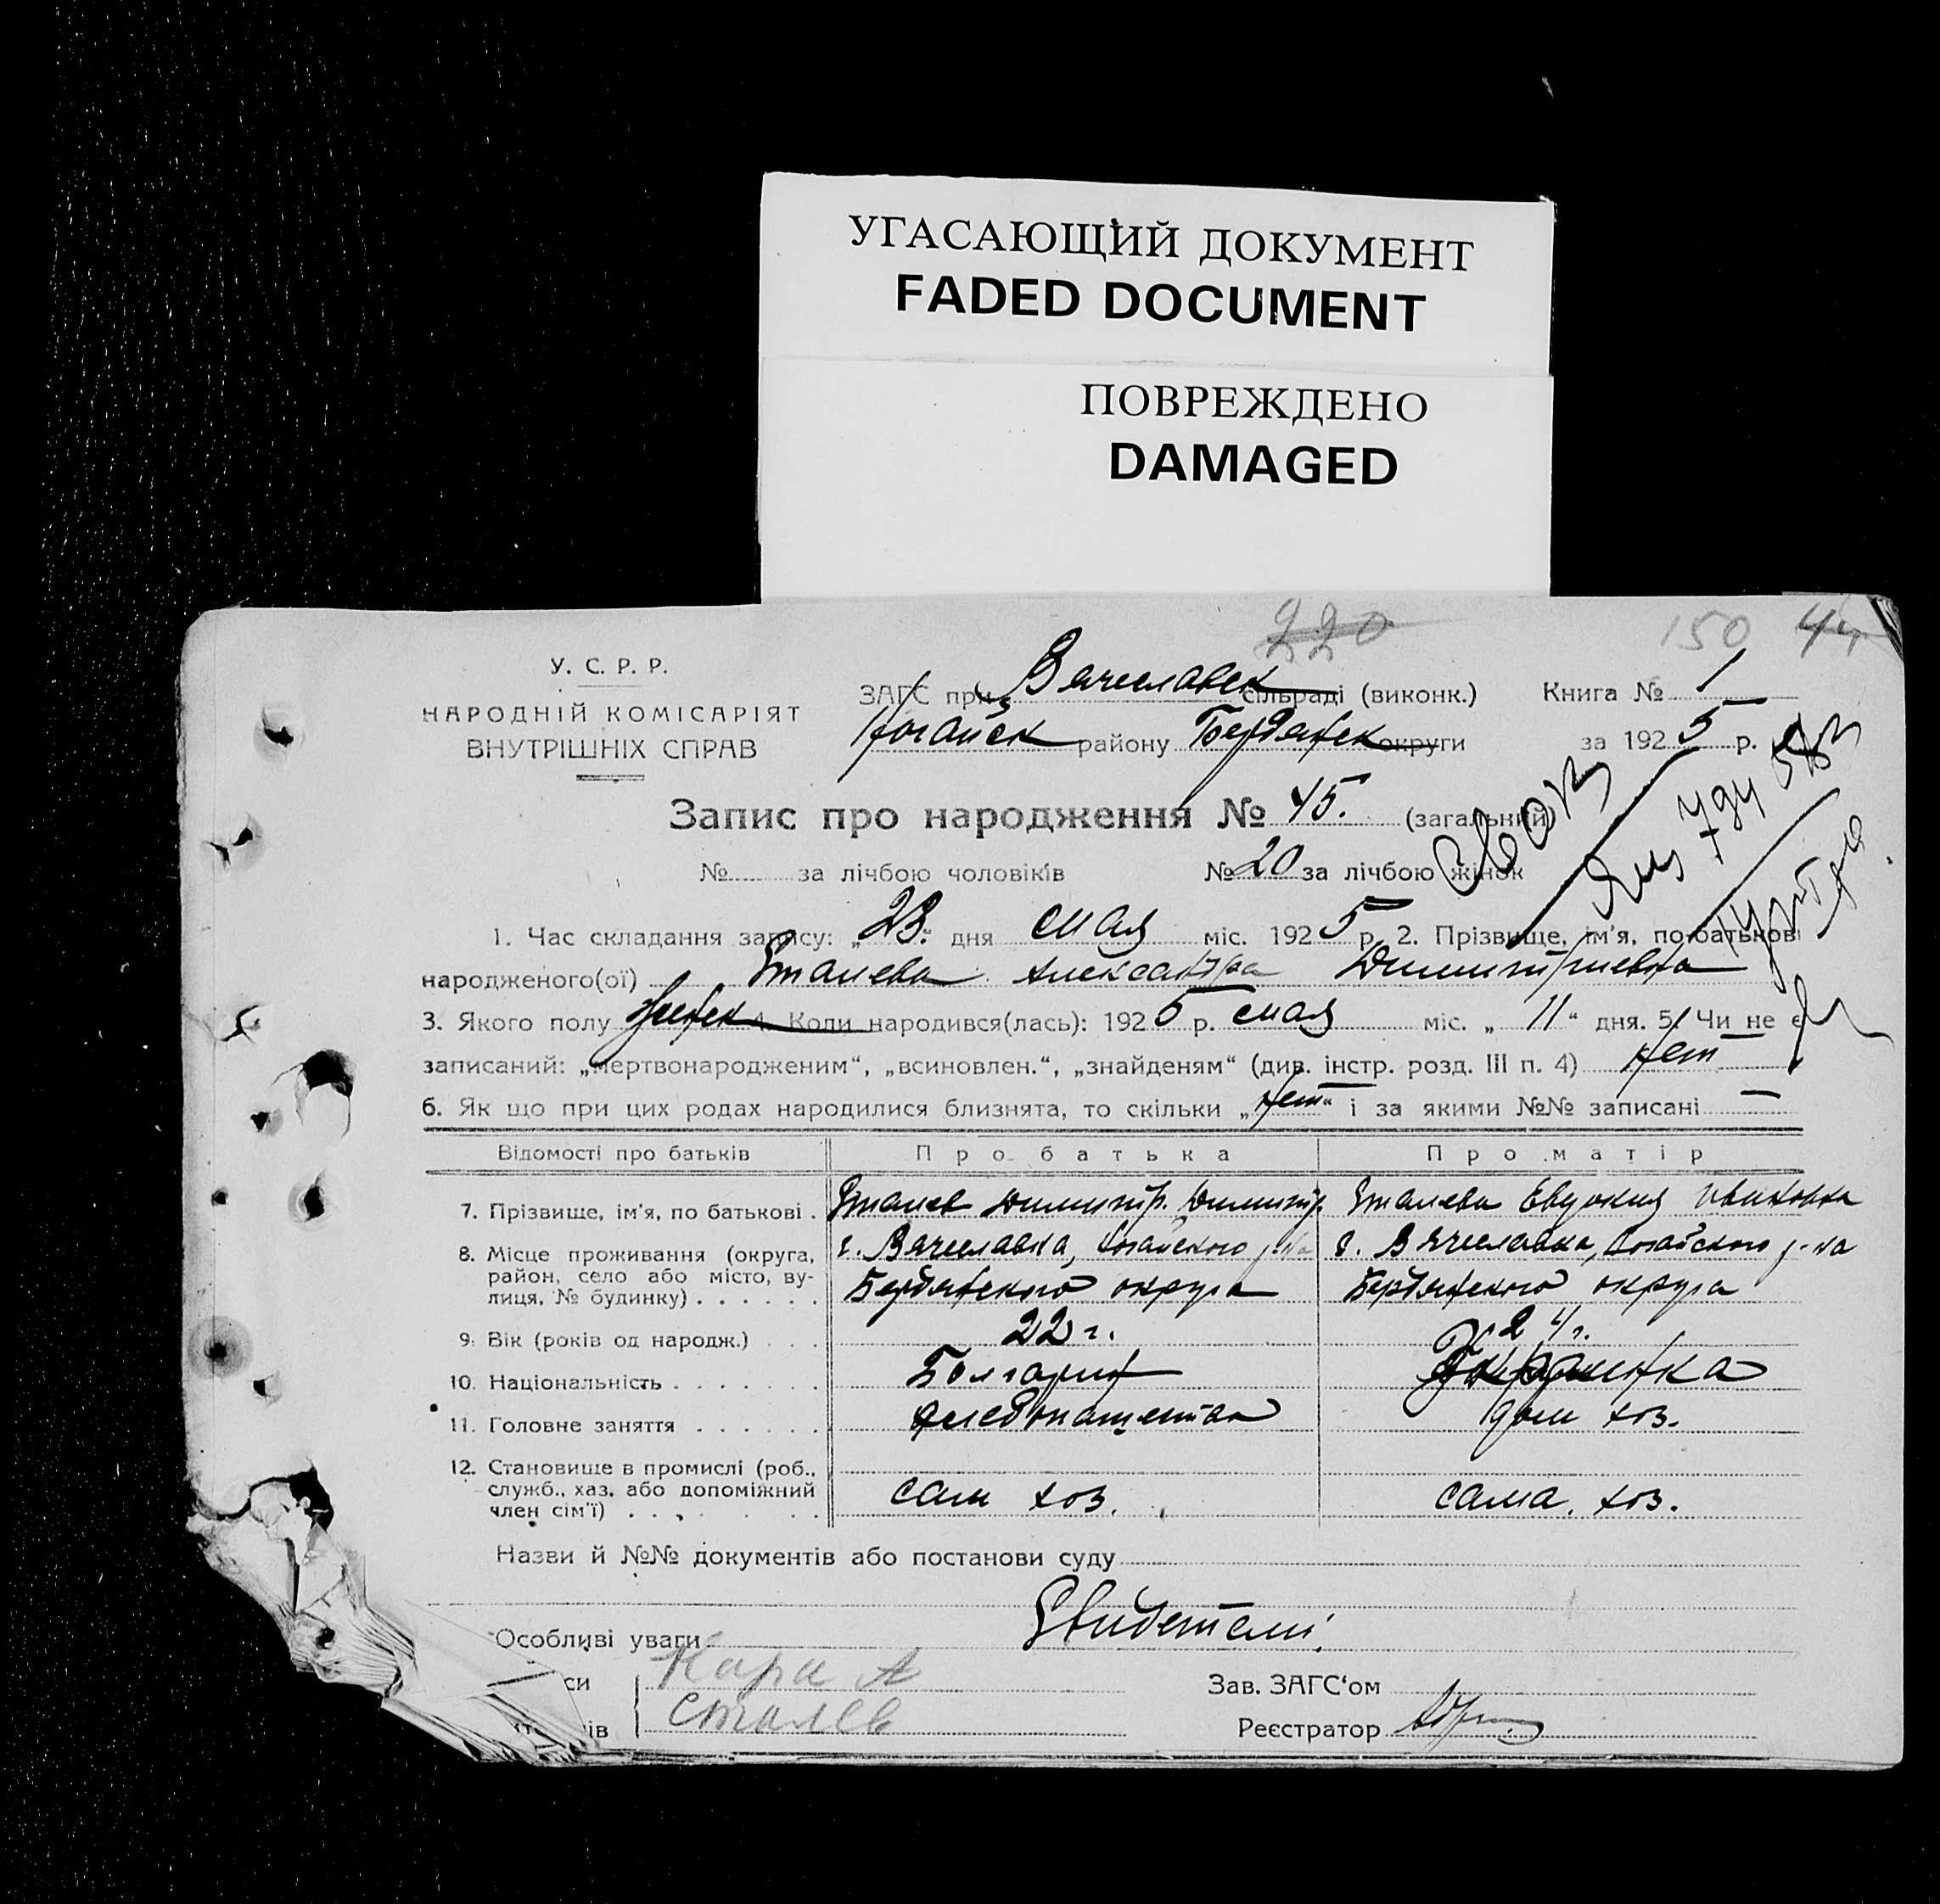 УГАСАЮЩИЙ ДОКУМЕНТ
FADED DOCUMENT
ПОВРЕЖДЕНО
DAMAGED
220 150 44
У. С. Р. Р.
НАРОДНІЙ КОМІСАРІЯТ
ВНУТРІШНІХ СПРАВ
ЗАГС при Вячеславск сільраді (виконк.) Книга № 1
Ногайск району Бердянск округи за 1925 р.
Запис про народження № 45. (загальний)
№ за лічбою чоловіків № 20 за лічбою жінок
1. Час складання запису: „23“ дня мая міс. 1925 р. 2. Прізвище, ім'я, по батькові
народженого(ої) Сталева Александра Димитриевна
3. Якого полу женск 4. Коли народився(лась): 1925 р. мая міс. „11“ дня. 5. Чи не є
записаний: „мертвонародженим“, „всиновлен.“, „знайденям“ (див. інстр. розд. III п. 4) нет
6. Як що при цих родах народилися близнята, то скільки „нет“ і за якими №№ записані —
Відомості про батьків Про батька Про матір
7. Прізвище, ім'я, по батькові . Сталев Димитр. Димитр. Сталева Евдокия Ивановна
8. Місце проживання (округа, район, село або місто, вулиця, № будинку) . . . . . . с. Вячеславка, Ногайского р-на с. Вячеславка, Ногайского р-на
Бердянского округа Бердянского округа
9. Вік (років од народж.) . . . 22 г. 2 г.
10. Національність . . . . . . Болгарин Украинка
11. Головне заняття . . . . . . хлебопашество дом хоз.
12. Становище в промислі (роб., служб., хаз. або допоміжний член сім'ї) . . . . . . сам хоз. сама. хоз.
Назви й №№ документів або постанови суду
Особливі уваги Свидетели:
си Кара А Зав. ЗАГС'ом
ів Сталев Реєстратор